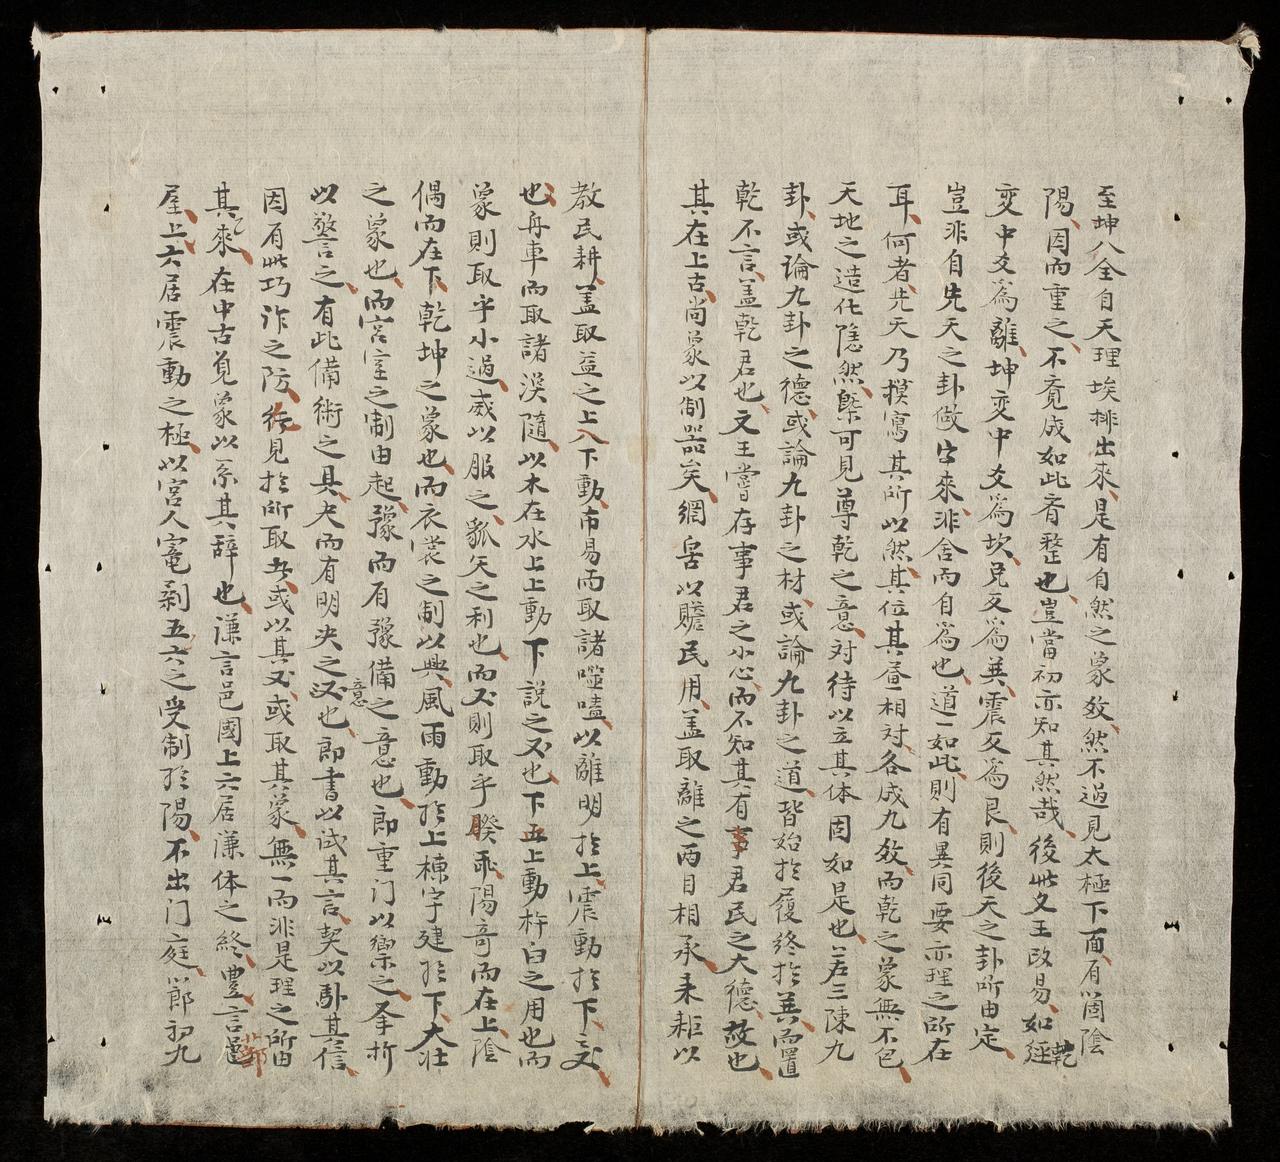 至坤八全自天理埃排出來是有自然之象数然不過見太極下面有箇陰
陽因而重之不竟成如此齊整也豈當初亦知其然哉後此文王改易如乾
変中爻爲離坤変中爻爲坎兑反爲巽震反爲艮則後天之卦所由定
豈非自先天之卦做出來非舍而自爲也道一如此則有異同要亦理之所在
耳何者先天乃摸寫其所以然其位其畨一相対各成九数而乾之象無不包
天地之造化隐然槩可見尊乾之意対待以立其体固如是也若三陳九
卦或论九卦之德或論九卦之材或論九卦之道皆始於履終於巽而置
乾不言盖乾君也文王嘗存事君之小心而不知其有事君民之大德故也
其在上古尚象以制器矣網罟以贍民用盖取離之両目相承耒耟以
教民耕盖取益之上入下動市易而取諸噬嗑以離明於上震動於下交
也舟車而取諸渙隨以木在水上上動下説之义也下五上動杵臼之用也而
象則取乎小過威以服之弧矢之利也而义則取乎睽乖陽奇而在上陰
偶而在下乾坤之象也而衣裳之制以興風雨動於上棟宇建於下大壮
之象也而宮室之制由起豫而有豫備之意也即重门以禦之夆柝
以警之有此備術之具夬而有明决之义意也即書以試其言契以驗其信
因有此巧诈之防待見於所取者或以其义或取其象無一而非是理之所由
其來在中古見象以系其辞也谦言邑國上六居谦体之終豊言蔀
屋上六居震動之極以宮人寵剥五六之受制於陽不出门庭節初九